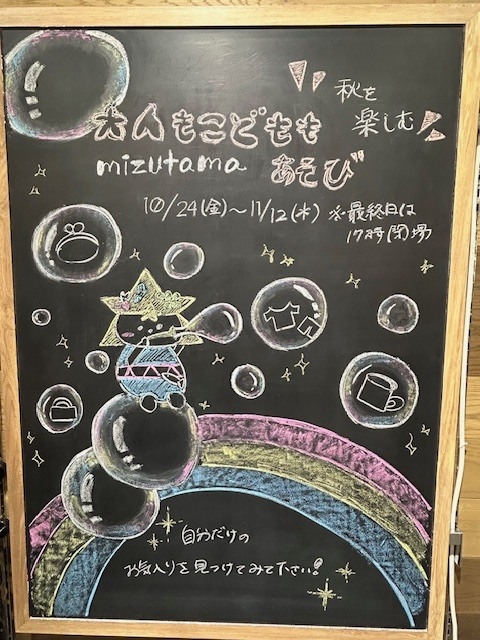 秋を
楽しむ
大人もこどもも
mizutama あそび
10/24(金)～11/12(水) ※最終日は
17時閉場
自分だけの
お気入りを見つけてみて下さい!